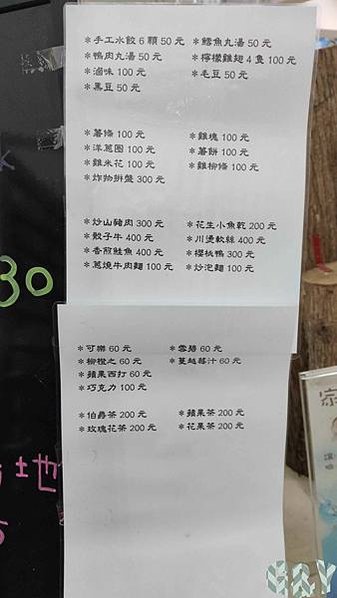 ＊手工水餃 6 顆 50 元 ＊鱈魚丸湯 50 元
＊鴨肉丸湯 50 元 ＊檸檬雞翅 4 隻 100 元
＊滷味 100 元 ＊毛豆 50 元
＊黑豆 50 元
＊薯條 100 元 ＊雞塊 100 元
＊洋蔥圈 100 元 ＊薯餅 100 元
＊雞米花 100 元 ＊雞柳條 100 元
＊炸物拼盤 300 元
＊炒山豬肉 300 元 ＊花生小魚乾 200 元
＊骰子牛 400 元 ＊川燙軟絲 400 元
＊香煎鮭魚 400 元 ＊櫻桃鴨 300 元
＊蔥燒牛肉麵 100 元 ＊炒泡麵 100 元
30
＊可樂 60 元 ＊雪碧 60 元
＊柳橙汁 60 元 ＊蔓越莓汁 60 元
＊蘋果西打 60 元
＊巧克力 100 元
＊伯爵茶 200 元 ＊蘋果茶 200 元
＊玫瑰花茶 200 元 ＊花果茶 200 元
地
S&Y